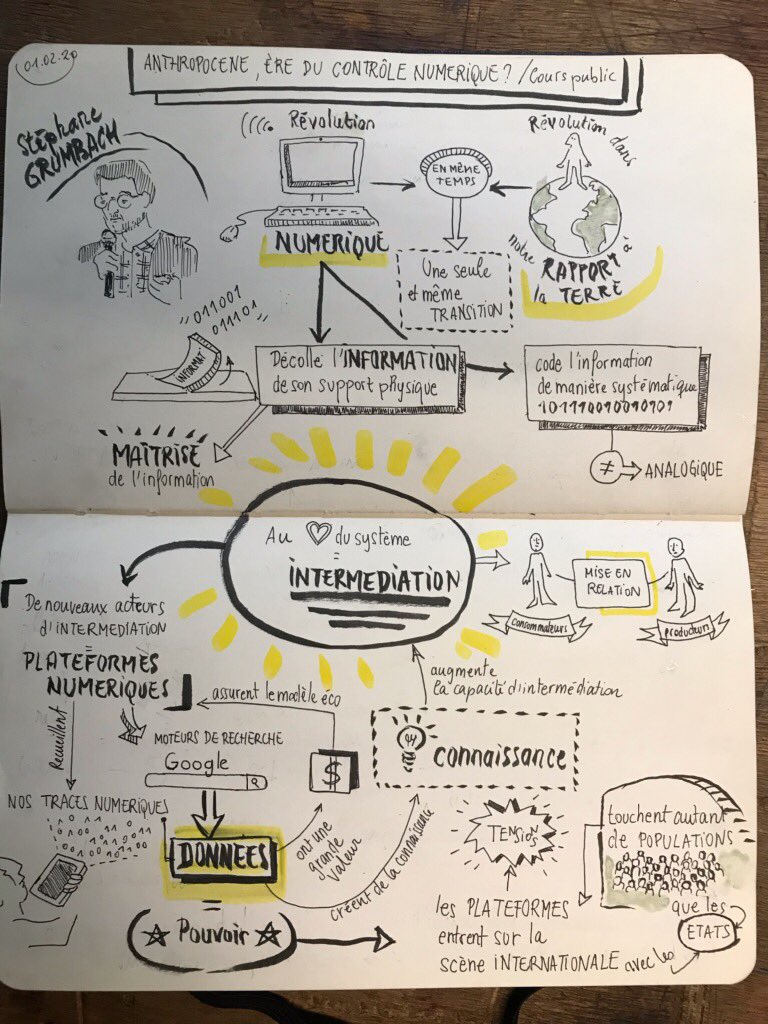 01.02.20
ANTHROPOCENE, ÈRE DU CONTRÔLE NUMERIQUE ? / Cours public
Stéphane
GRUMBACH
Révolution
NUMERIQUE
EN MÊME
TEMPS
Révolution dans
notre RAPPORT à
la TERRE
Une seule
et même
TRANSITION
011001
011101
INFORMAT°
Décolle l'INFORMATION
de son support physique
code l'information
de manière systématique
MAÎTRISE
de l'information
≠
ANALOGIQUE
Au ♡ du système
=
INTERMEDIATION
MISE EN
RELATION
consommateurs
producteurs
De nouveaux acteurs
d'INTERMEDIATION
=
PLATEFORMES
NUMERIQUES
assurent le modèle éco
augmente
la capacité d'intermédiation
Recueillent
MOTEURS DE RECHERCHE
Google
$
connaissance
NOS TRACES NUMERIQUES
DONNEES
ont une
grande
valeur
créent de la connaissance
TENSIONS
touchent autant
de POPULATIONS
que les
ETATS
=
☆ Pouvoir ☆
les PLATEFORMES
entrent sur la
scène INTERNATIONALE avec les